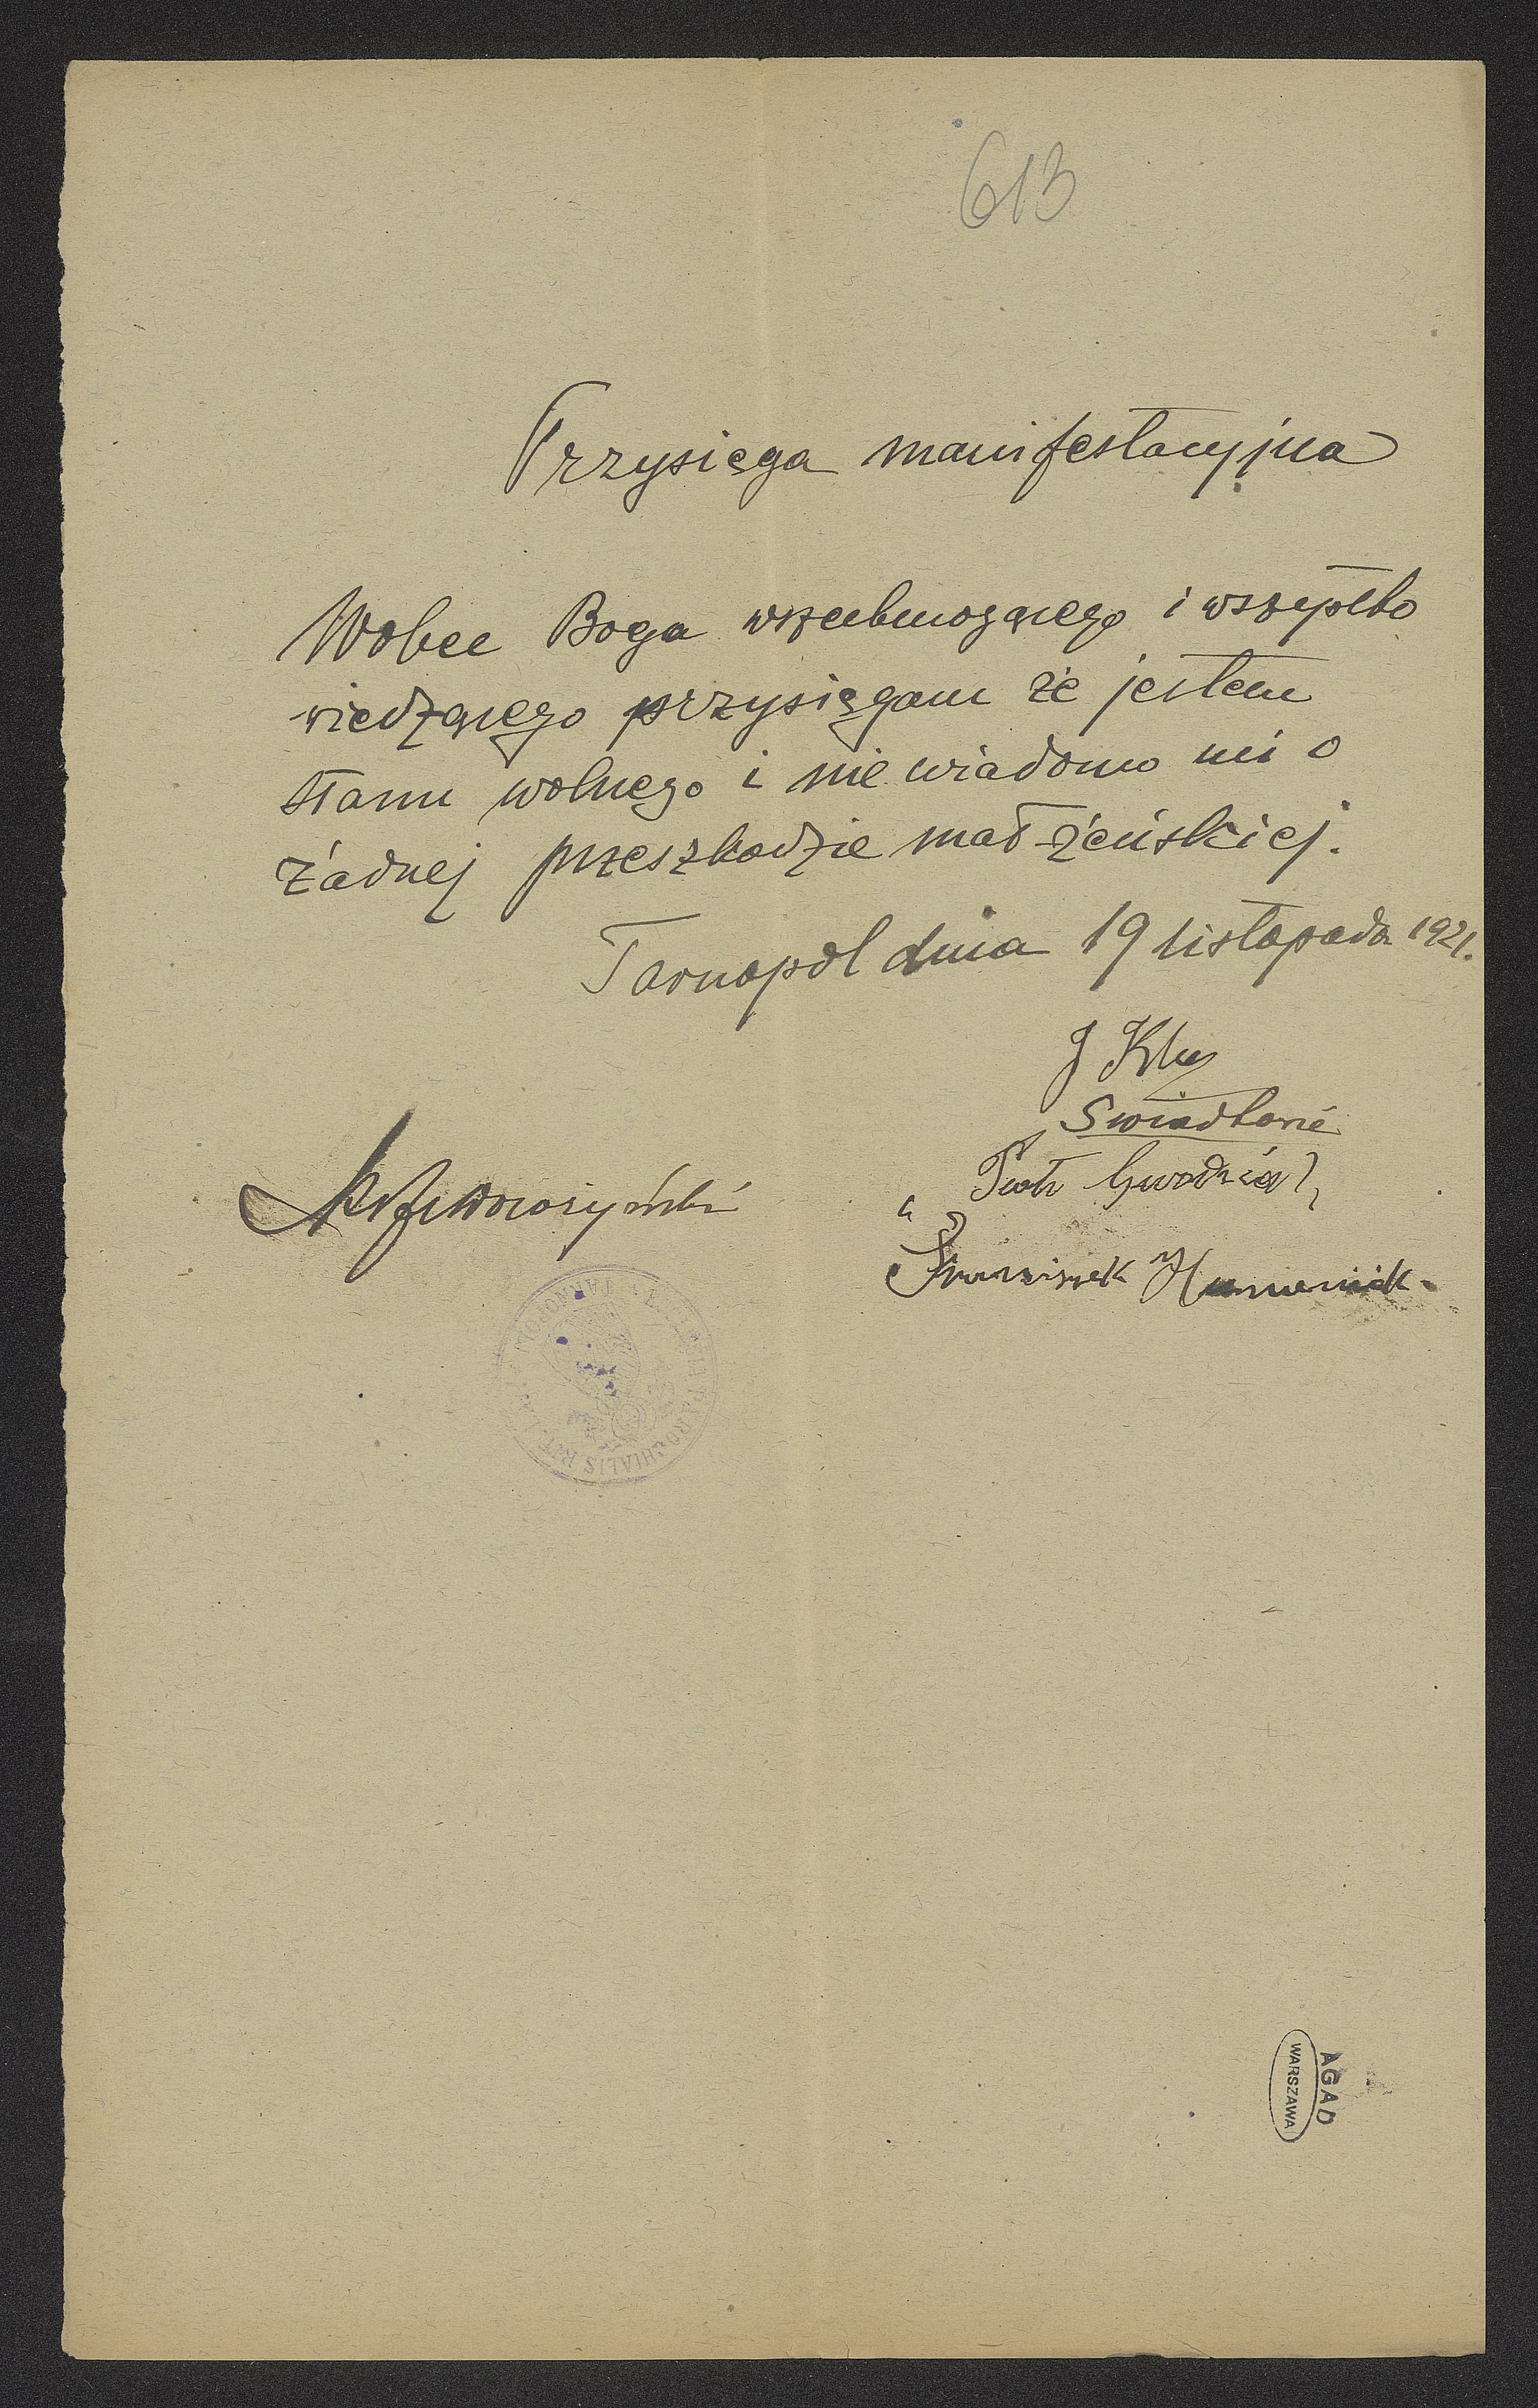 613
Przysięga manifestacyjna
Wobec Boga wszechmogącego i wszystko
wiedzącego przysięgam że jestem
stanu wolnego i nie wiadomo mi o
żadnej przeszkodzie mał-żeńskiej.
Tarnopol dnia 19 listopada 1921.
J Klus
Swiadkowie
Piotr Gwoździał
Franciszek Humeniuk.
PAROCHIALIS RIT. LAT.
AGAD
WARSZAWA